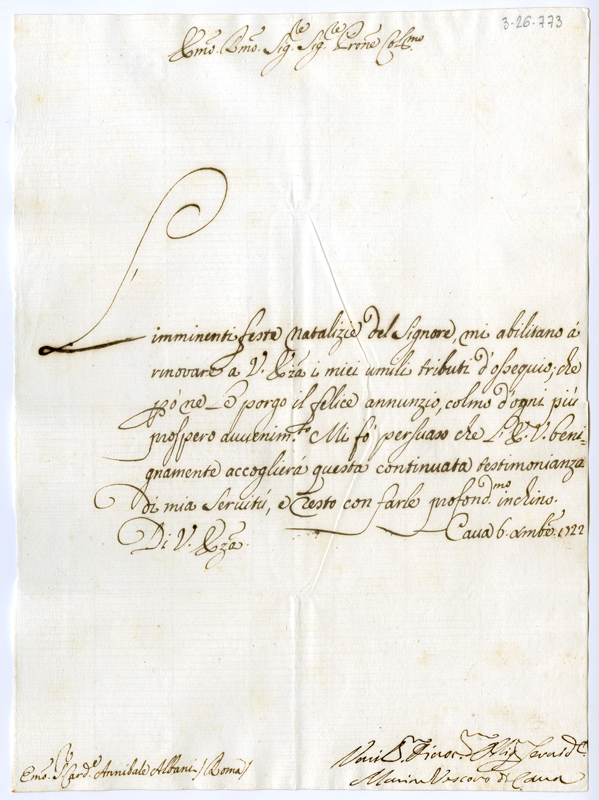 3-26-773
Emo. Rmo. Sig.re Sig.re Prone Col.mo
L'imminenti feste Natalizie del Signore, mi abilitano á
rinovare a V. Eza i miei umili tributi d'ossequio; che
però ne Le porgo il felice annunzio, colmo d'ogni piú
prospero avvenim.to Mi fò persuaso che L'E. V. beni-
gnamente accoglierá questa continuata testimonianza
di mia Servitú, e resto con farle profond.mo inchino.
Di V. Eza.
Cava 6. Xmbre 1722
Emo. Card.e Annibale Albani / Roma /
Umil.
Marino Vescovo di Cava